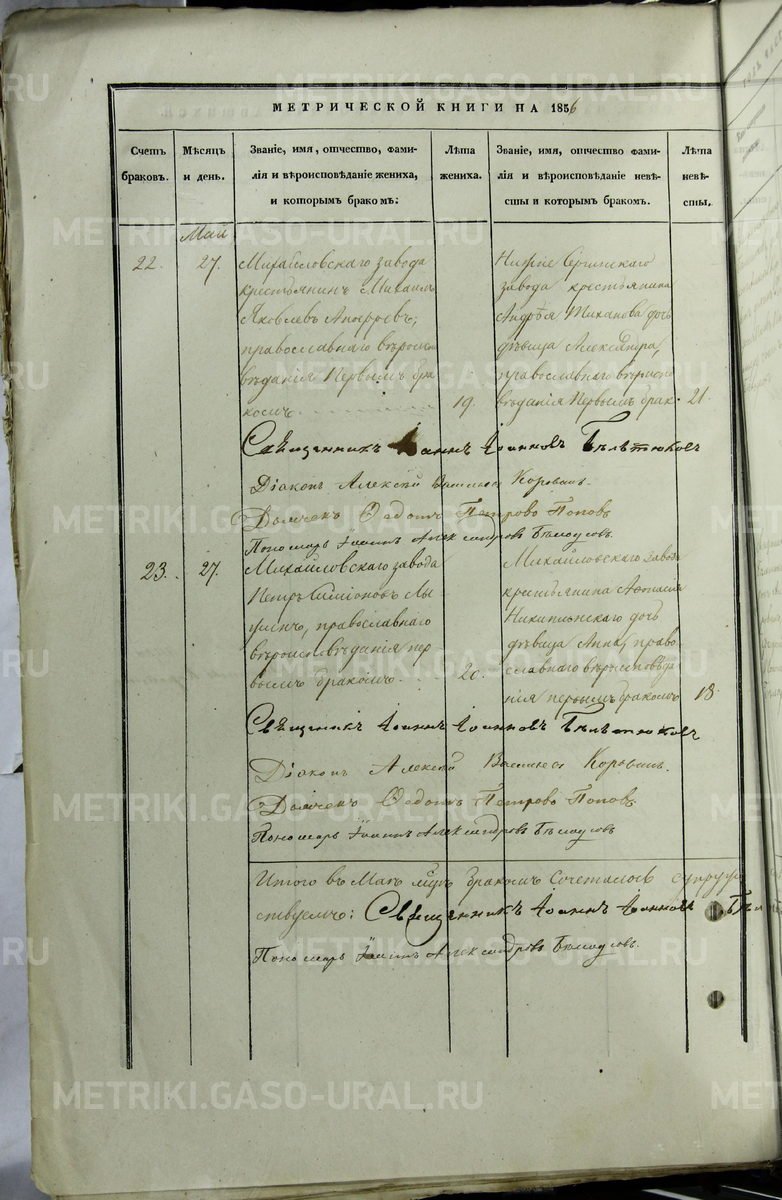 МЕТРИЧЕСКОЙ КНИГИ НА 1856
Счетъ браковъ.
Мѣсяцъ и день.
Званіе, имя, отчество, фами-
лія и вѣроисповѣданіе жениха,
и которымъ бракомъ:
Лѣта жениха.
Званіе, имя, отчество фами
лія и вѣроисповѣданіе невѣ-
сты и которымъ бракомъ.
Лѣта невѣ-
сты,
Май
22. 27.
Михайловскаго завода
крестьянинъ Михаилъ
Яковлевъ
православнаго вѣроиспо
вѣданія Первымъ бра
комъ
19.
Нижне Сергинскаго
завода крестьянина
Андрея Тиханова дочь
дѣвица Александра,
православнаго вѣроиспо
вѣданія Первымъ брак.
21.
Священникъ Іоаннъ Іоанновъ Бѣлѣтюковъ
Діаконъ Алексѣй Васильевъ
Дьячекъ Федотъ Петровъ Поповъ
Пономарь Іоаннъ Александровъ Бѣлоусовъ.
23. 27.
Михайловскаго завода
Петръ Симіоновъ
православнаго
вѣроисповѣданія пер
вымъ бракомъ.
20.
Михайловскаго завода
крестьянина Афанасія
дочь
дѣвица Анна, право
славнаго вѣроисповѣда
нія первымъ бракомъ
18.
Священникъ Іоаннъ Іоанновъ Бѣлѣтюковъ
Діаконъ Алексѣй Васильевъ
Дьячекъ Федотъ Петровъ Поповъ
Пономарь Іоаннъ Александровъ Бѣлоусовъ
Итого въ Маѣ мѣсяцѣ бракомъ Сочеталось
Священникъ Іоаннъ Іоанновъ
Пономарь Іоаннъ Александровъ Бѣлоусовъ.
METRIKI.GASO-URAL.RU